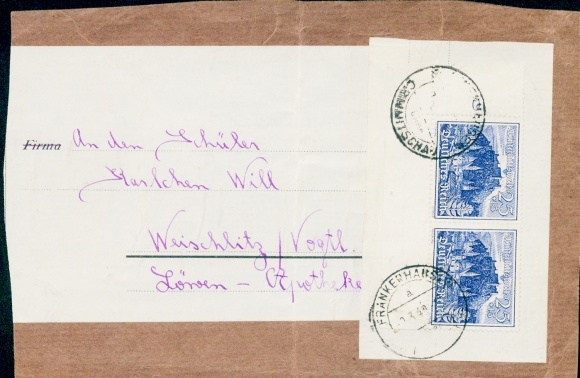 Firma
An den Schüler
Karlchen Will
Weischlitz / Vogtl.
Löwen - Apotheke
Deutsches Reich
25
Deutsches Reich
25
FRANKENHAUSEN
a